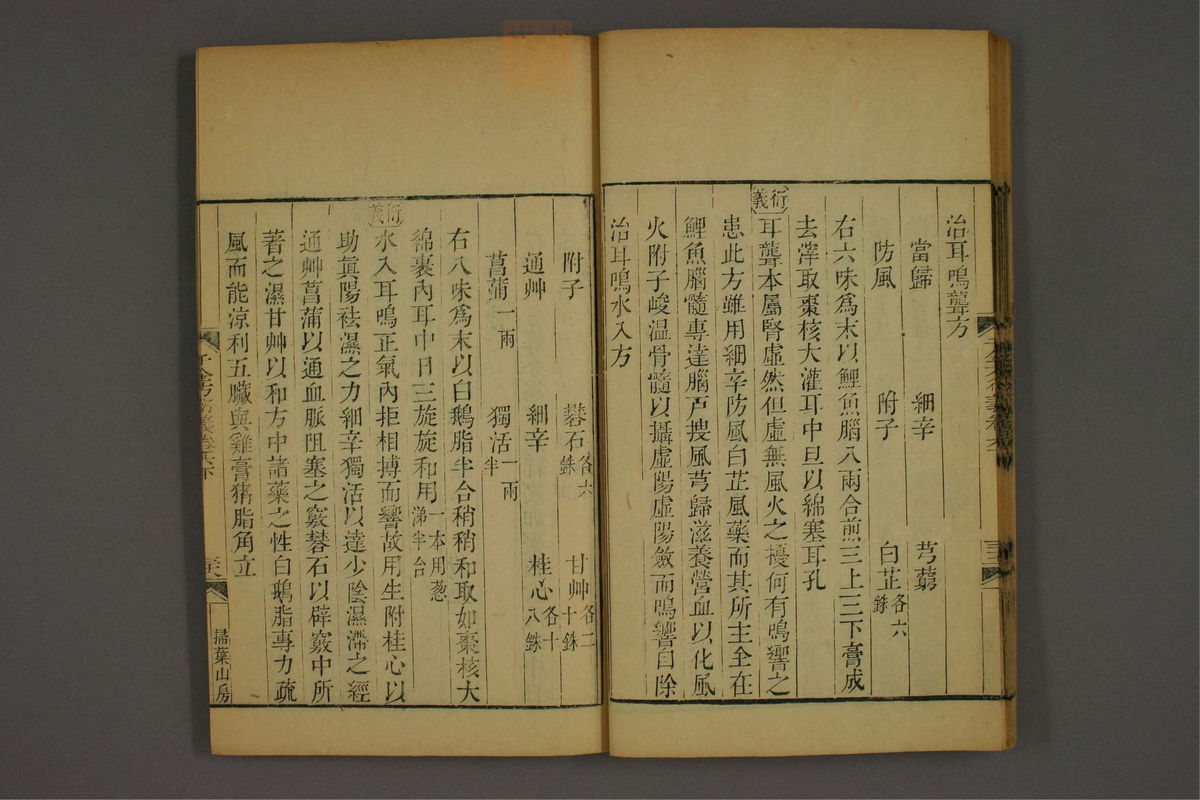 治耳鳴聾方
當歸 細辛 芎藭
防風 附子 白芷各六銖
右六味爲末以鯉魚腦八兩合煎三上三下膏成
去滓取棗核大灌耳中旦以綿塞耳孔
衍義
耳聾本屬腎虛然但虛無風火之擾何有鳴響之
患此方雖用細辛防風白芷風藥而其所主全在
鯉魚腦髓專達腦戸搜風芎歸滋養營血以化風
火附子峻溫骨髓以攝虛陽虛陽斂而鳴響自除
治耳鳴水入方
附子 礬石各六銖 甘艸各二十銖
通艸 細辛 桂心各十八銖
菖蒲一兩 獨活一兩半
右八味爲末以白鵝脂半合稍稍和取如棗核大
綿裹內耳中日三旋旋和用一本用葱涕半合
衍義
水入耳鳴正氣內拒相搏而響故用生附桂心以
助眞陽祛濕之力細辛獨活以達少陰濕滯之經
通艸菖蒲以通血脈阻塞之竅礬石以辟竅中所
著之濕甘艸以和方中諸藥之性白鵝脂專力疏
風而能涼利五臟與雞膏猪脂角立
掃葉山房